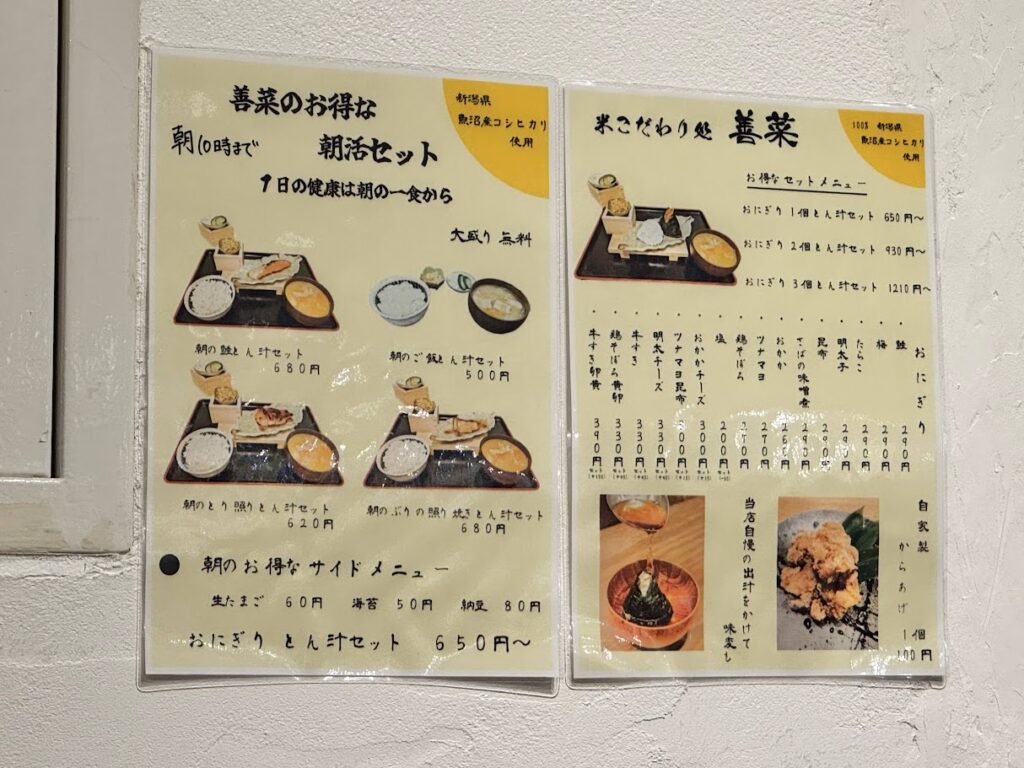 善菜のお得な
朝10時まで
朝活セット
1日の健康は朝の一食から
新潟県
魚沼産コシヒカリ
使用
大盛り 無料
朝の鮭とん汁セット
680円
朝のご飯とん汁セット
500円
朝のとり照りとん汁セット
620円
朝のぶりの照り焼きとん汁セット
680円
朝のお得なサイドメニュー
生たまご 60円 海苔 50円 納豆 80円
おにぎり とん汁セット 650円〜
米こだわり処 善菜
100% 新潟県
魚沼産コシヒカリ
使用
お得なセットメニュー
おにぎり 1個とん汁セット 650円〜
おにぎり 2個とん汁セット 930円〜
おにぎり 3個とん汁セット 1210円〜
おにぎり
・鮭 290円
・梅 290円
・たらこ 290円
・明太子 290円
・昆布 290円
・さばの味噌煮 290円
・おかか 260円
・ツナマヨ 270円
・鶏そぼろ 270円
・塩 200円
・おかかチーズ 300円
・ツナマヨ昆布 300円
・明太チーズ 330円
・牛すき 330円
・鶏そぼろ黄卵 330円
・牛すき卵黄 390円
当店自慢の出汁をかけて
味変も
自家製
からあげ 1個
100円